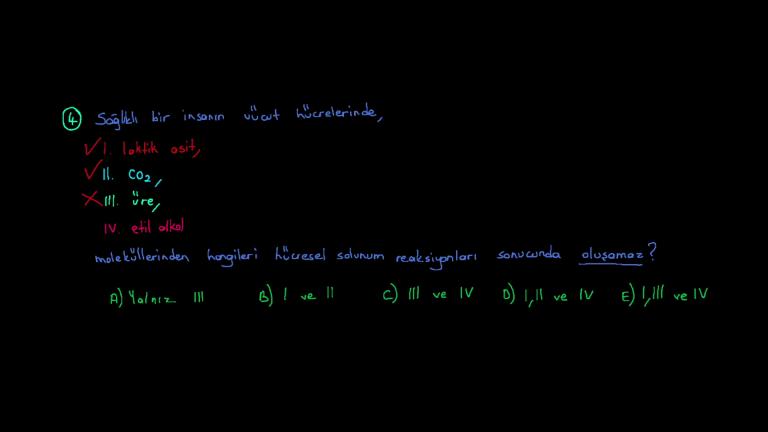 4 Sağlıklı bir insanın vücut hücrelerinde,
I. laktik asit,
II. CO2,
III. üre,
IV. etil alkol
moleküllerinden hangileri hücresel solunum reaksiyonları sonucunda oluşamaz?
A) Yalnız III B) I ve II C) III ve IV D) I, II ve IV E) I, III ve IV